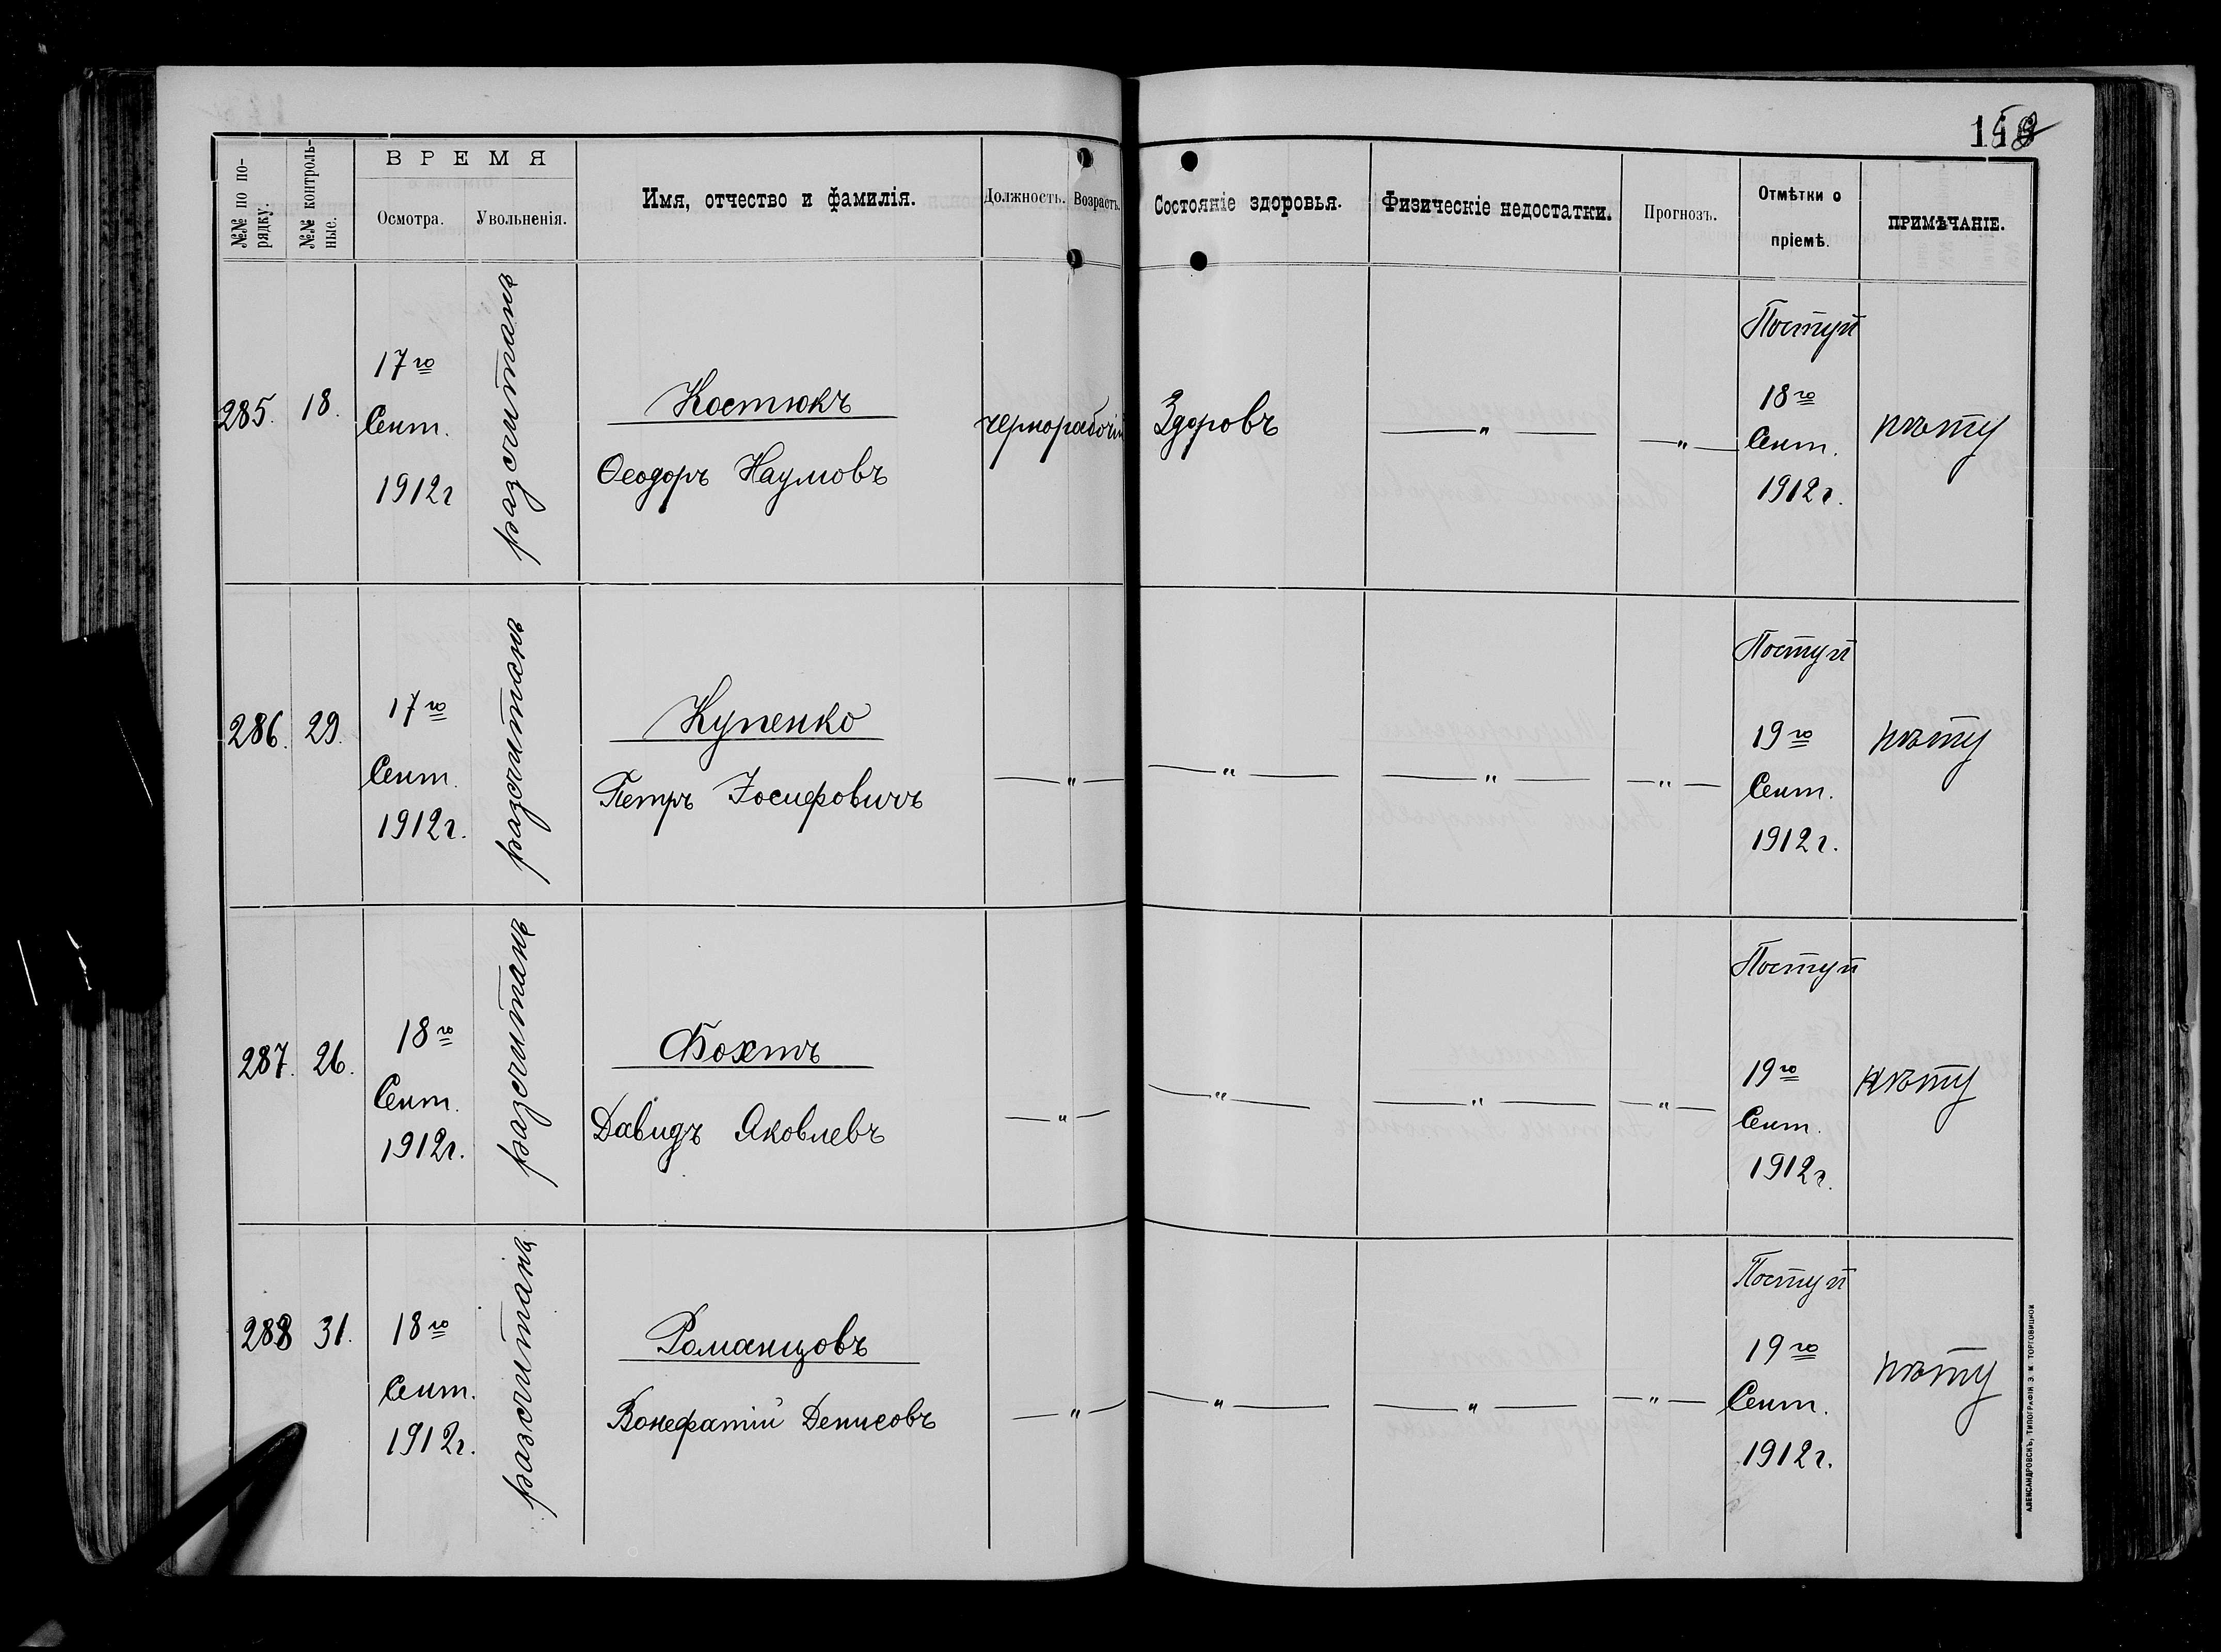 118
№№ по по-
рядку.
№№ контроль-
ные.
ВРЕМЯ
Осмотра.
Увольненія.
Имя, отчество и фамилія.
Должность.
Возрастъ.
Состояніе здоровья.
Физическіе недостатки.
Прогнозъ.
Отмѣтки о
пріемѣ.
ПРИМѢЧАНІЕ.
285.
18.
17го
Сент.
1912г
разсчитанъ
Костюкъ
Ѳеодоръ Наумовъ
чернорабочій
Здоровъ
— " —
— " —
Поступ
18го
Сент.
1912г.
нѣту
286.
29.
17го
Сент.
1912г.
разсчитанъ
Купенко
Петръ Іосифовичъ
— " —
— " —
— " —
— " —
Поступ
19го
Сент.
1912г.
нѣту
287.
26.
18го
Сент.
1912г.
разсчитанъ
Бохтъ
Давидъ Яковлевъ
— " —
— " —
— " —
— " —
Поступ
19го
Сент.
1912г.
нѣту
288
31.
18го
Сент.
1912г.
разсчитанъ
Романцовъ
Вонефатій Денисовъ
— " —
— " —
— " —
— " —
Поступ
19го
Сент.
1912г.
нѣту
АЛЕКСАНДРОВСКЪ, ТИПОГРАФІЯ Э. М. ТОРГОВИЦКОЙ